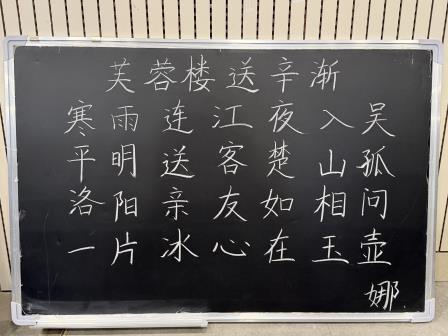 芙蓉楼送辛渐
寒雨连江夜入吴
平明送客楚山孤
洛阳亲友如相问
一片冰心在玉壶
娜